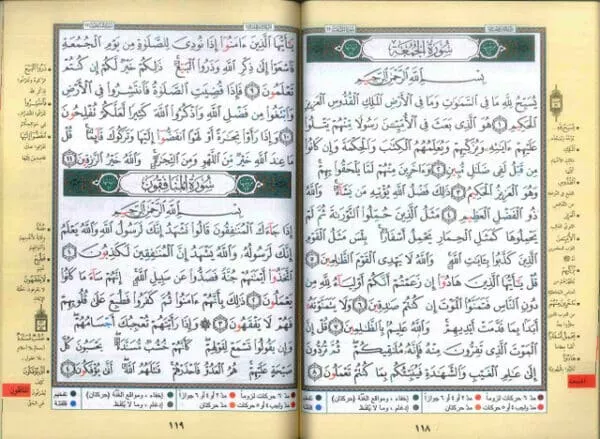 سُورَةُ الجُمُعَةِ
بِسْمِ اللَّهِ الرَّحْمَٰنِ الرَّحِيمِ
يُسَبِّحُ لِلَّهِ مَا فِي السَّمَٰوَٰتِ وَمَا فِي الْأَرْضِ الْمَلِكِ الْقُدُّوسِ الْعَزِيزِ
الْحَكِيمِ ١ هُوَ الَّذِي بَعَثَ فِي الْأُمِّيِّينَ رَسُولًا مِنْهُمْ يَتْلُوا
عَلَيْهِمْ ءَايَٰتِهِ وَيُزَكِّيهِمْ وَيُعَلِّمُهُمُ الْكِتَٰبَ وَالْحِكْمَةَ وَإِنْ كَانُوا
مِنْ قَبْلُ لَفِي ضَلَٰلٍ مُبِينٍ ٢ وَءَاخَرِينَ مِنْهُمْ لَمَّا يَلْحَقُوا بِهِمْ
وَهُوَ الْعَزِيزُ الْحَكِيمُ ٣ ذَٰلِكَ فَضْلُ اللَّهِ يُؤْتِيهِ مَنْ يَشَاءُ وَاللَّهُ
ذُو الْفَضْلِ الْعَظِيمِ ٤ مَثَلُ الَّذِينَ حُمِّلُوا التَّوْرَىٰةَ ثُمَّ لَمْ
يَحْمِلُوهَا كَمَثَلِ الْحِمَارِ يَحْمِلُ أَسْفَارًا بِئْسَ مَثَلُ الْقَوْمِ
الَّذِينَ كَذَّبُوا بِـَٔايَٰتِ اللَّهِ وَاللَّهُ لَا يَهْدِي الْقَوْمَ الظَّٰلِمِينَ ٥
قُلْ يَٰأَيُّهَا الَّذِينَ هَادُوا إِنْ زَعَمْتُمْ أَنَّكُمْ أَوْلِيَاءُ لِلَّهِ مِنْ
دُونِ النَّاسِ فَتَمَنَّوُا الْمَوْتَ إِنْ كُنْتُمْ صَٰدِقِينَ ٦ وَلَا يَتَمَنَّوْنَهُ
أَبَدًا بِمَا قَدَّمَتْ أَيْدِيهِمْ وَاللَّهُ عَلِيمٌ بِالظَّٰلِمِينَ ٧ قُلْ إِنَّ
الْمَوْتَ الَّذِي تَفِرُّونَ مِنْهُ فَإِنَّهُ مُلَٰقِيكُمْ ثُمَّ تُرَدُّونَ
إِلَىٰ عَٰلِمِ الْغَيْبِ وَالشَّهَٰدَةِ فَيُنَبِّئُكُمْ بِمَا كُنْتُمْ تَعْمَلُونَ ٨
الجمعة
١١٨
يَٰأَيُّهَا الَّذِينَ ءَامَنُوا إِذَا نُودِيَ لِلصَّلَوٰةِ مِنْ يَوْمِ الْجُمُعَةِ
فَاسْعَوْا إِلَىٰ ذِكْرِ اللَّهِ وَذَرُوا الْبَيْعَ ذَٰلِكُمْ خَيْرٌ لَكُمْ إِنْ كُنْتُمْ
تَعْلَمُونَ ٩ فَإِذَا قُضِيَتِ الصَّلَوٰةُ فَانْتَشِرُوا فِي الْأَرْضِ
وَابْتَغُوا مِنْ فَضْلِ اللَّهِ وَاذْكُرُوا اللَّهَ كَثِيرًا لَعَلَّكُمْ تُفْلِحُونَ
١٠ وَإِذَا رَأَوْا تِجَٰرَةً أَوْ لَهْوًا انْفَضُّوا إِلَيْهَا وَتَرَكُوكَ قَائِمًا قُلْ
مَا عِنْدَ اللَّهِ خَيْرٌ مِنَ اللَّهْوِ وَمِنَ التِّجَٰرَةِ وَاللَّهُ خَيْرُ الرَّٰزِقِينَ ١١
سُورَةُ المُنَافِقُونَ
بِسْمِ اللَّهِ الرَّحْمَٰنِ الرَّحِيمِ
إِذَا جَاءَكَ الْمُنَٰفِقُونَ قَالُوا نَشْهَدُ إِنَّكَ لَرَسُولُ اللَّهِ وَاللَّهُ يَعْلَمُ
إِنَّكَ لَرَسُولُهُ وَاللَّهُ يَشْهَدُ إِنَّ الْمُنَٰفِقِينَ لَكَٰذِبُونَ ١
اتَّخَذُوا أَيْمَٰنَهُمْ جُنَّةً فَصَدُّوا عَنْ سَبِيلِ اللَّهِ إِنَّهُمْ سَاءَ مَا كَانُوا
يَعْمَلُونَ ٢ ذَٰلِكَ بِأَنَّهُمْ ءَامَنُوا ثُمَّ كَفَرُوا فَطُبِعَ عَلَىٰ قُلُوبِهِمْ
فَهُمْ لَا يَفْقَهُونَ ٣ وَإِذَا رَأَيْتَهُمْ تُعْجِبُكَ أَجْسَامُهُمْ
وَإِنْ يَقُولُوا تَسْمَعْ لِقَوْلِهِمْ كَأَنَّهُمْ خُشُبٌ مُسَنَّدَةٌ يَحْسَبُونَ كُلَّ
صَيْحَةٍ عَلَيْهِمْ هُمُ الْعَدُوُّ فَاحْذَرْهُمْ قَٰتَلَهُمُ اللَّهُ أَنَّىٰ يُؤْفَكُونَ ٤
المنافقون
١١٩